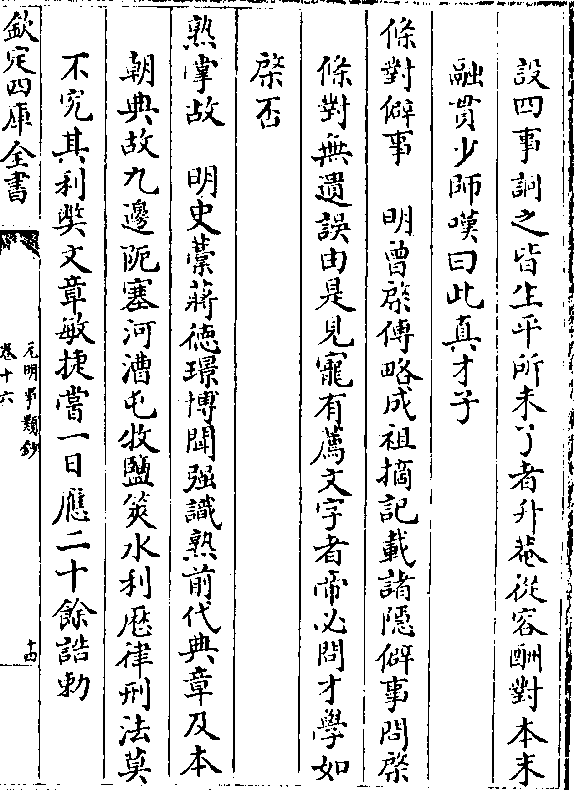 設四事詢之皆生平所未了者升菴從容酬對本末
融貫少師嘆曰此真才子
條對僻事　明曾棨傳略成祖摘記載諸隱僻事問棨
條對無遺誤由是見寵有薦文字者帝必問才學如
棨否
熟掌故　明史藁蔣德璟博聞强識熟前代典章及本
朝典故九邊阨塞河漕屯牧鹽筴水利厯律刑法莫
不究其利弊文章敏捷嘗一日應二十餘誥勅
欽定四庫全書
元明事類鈔
卷十六
十四